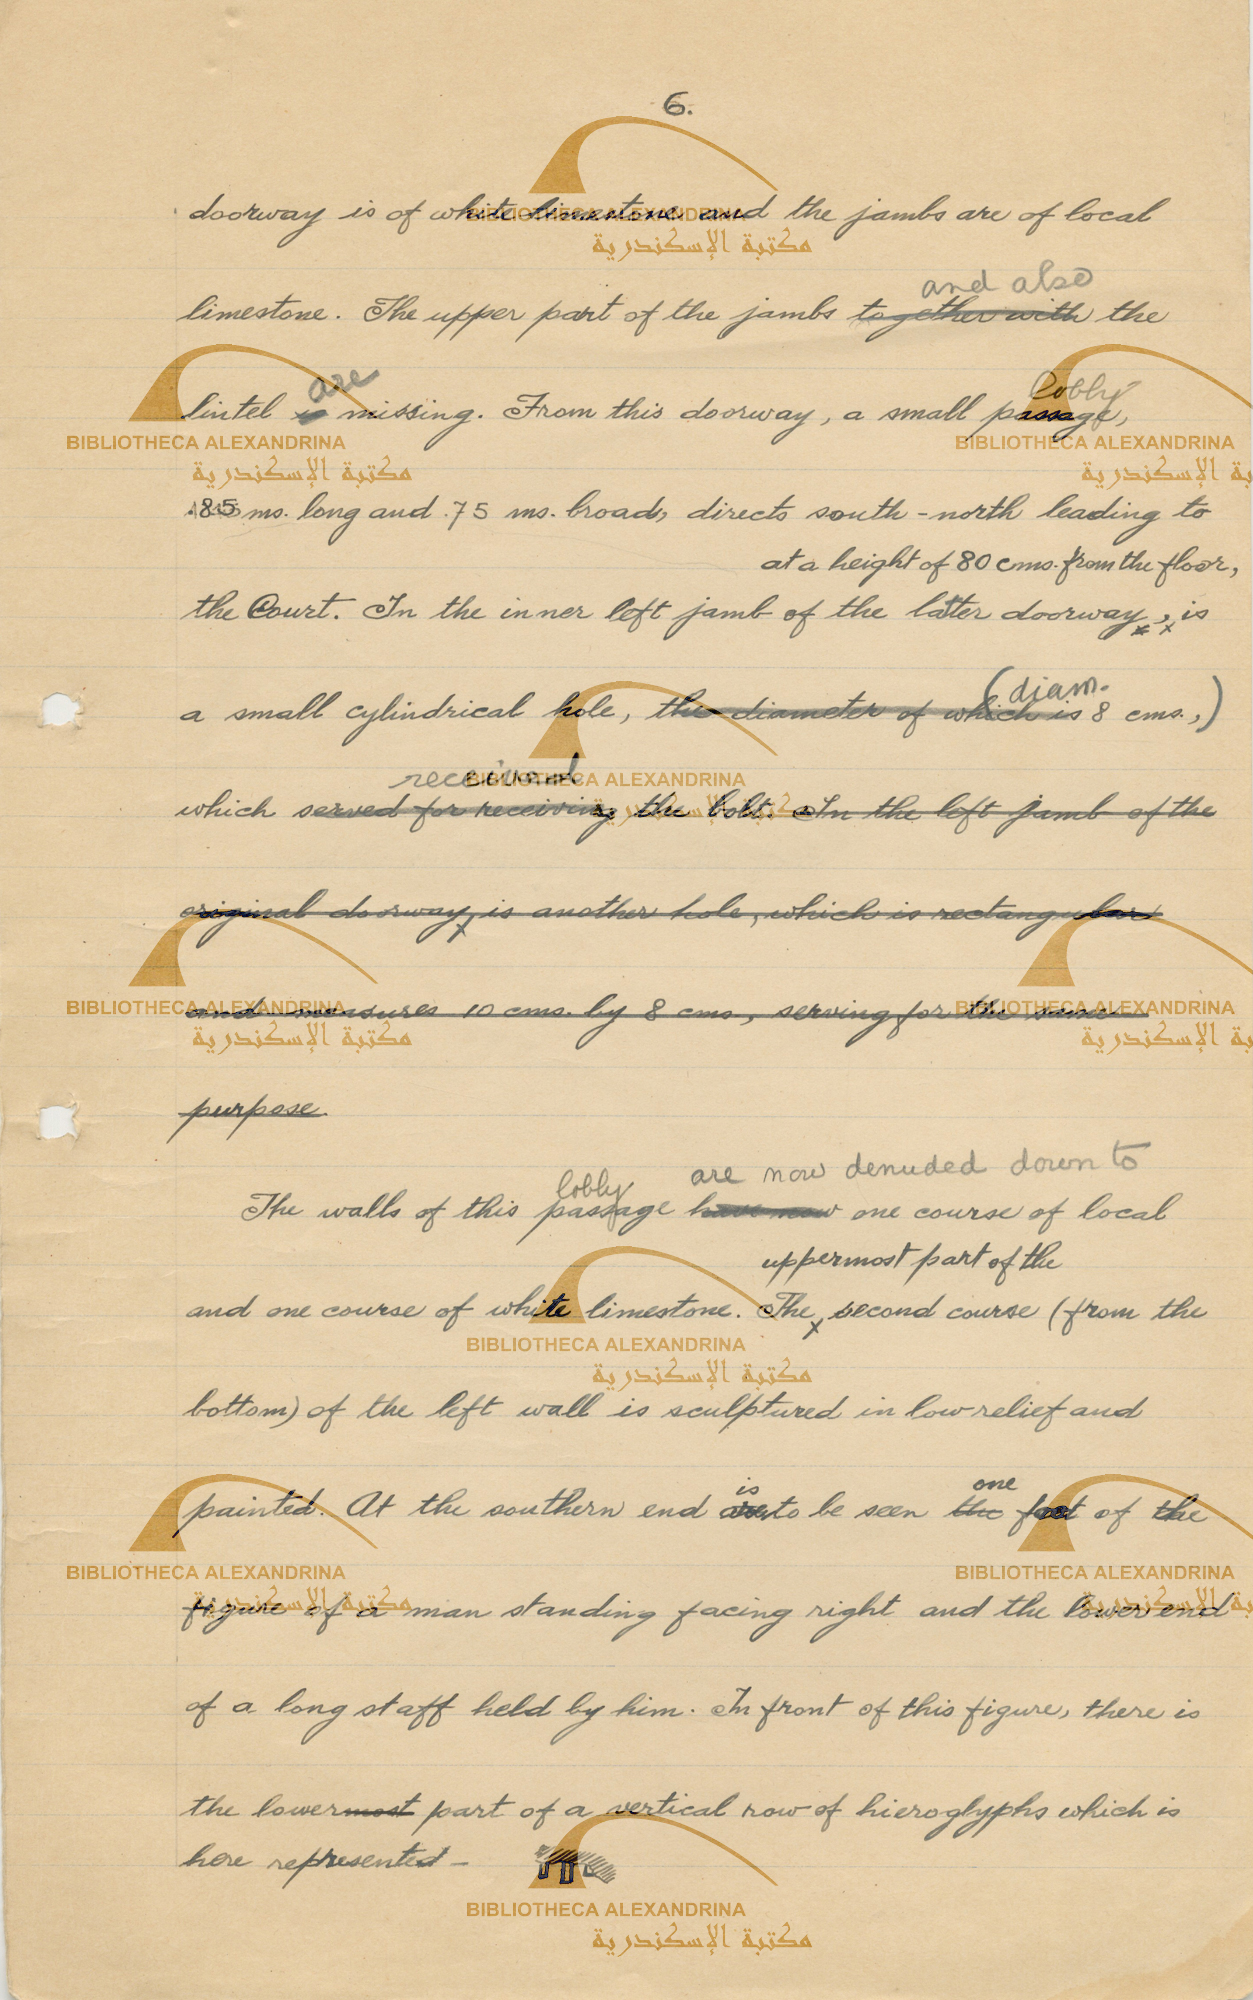 6.
doorway is of white limestone and the jambs are of local
and also
limestone. The upper part of the jambs together with the
are
lobby
lintel is missing. From this doorway, a small passage,
.85 ms. long and .75 ms. broad, directs south-north leading to
at a height of 80 cms. from the floor,
the Court. In the inner left jamb of the latter doorway, is
(diam.
a small cylindrical hole, the diameter of which is 8 cms.,)
received
which served for receiving the bolt. In the left jamb of the
original doorway, is another hole, which is rectangular
and measures 10 cms. by 8 cms, serving for the same
purpose.
lobby are now denuded down to
The walls of this passage have now one course of local
uppermost part of the
and one course of white limestone. The second course (from the
bottom) of the left wall is sculptured in low relief and
is one
painted. At the southern end are to be seen the foot of the
figure of a man standing facing right and the lower end
of a long staff held by him. In front of this figure, there is
the lowermost part of a vertical row of hieroglyphs which is
here represented –
BIBLIOTHECA ALEXANDRINA
مكتبة الإسكندرية